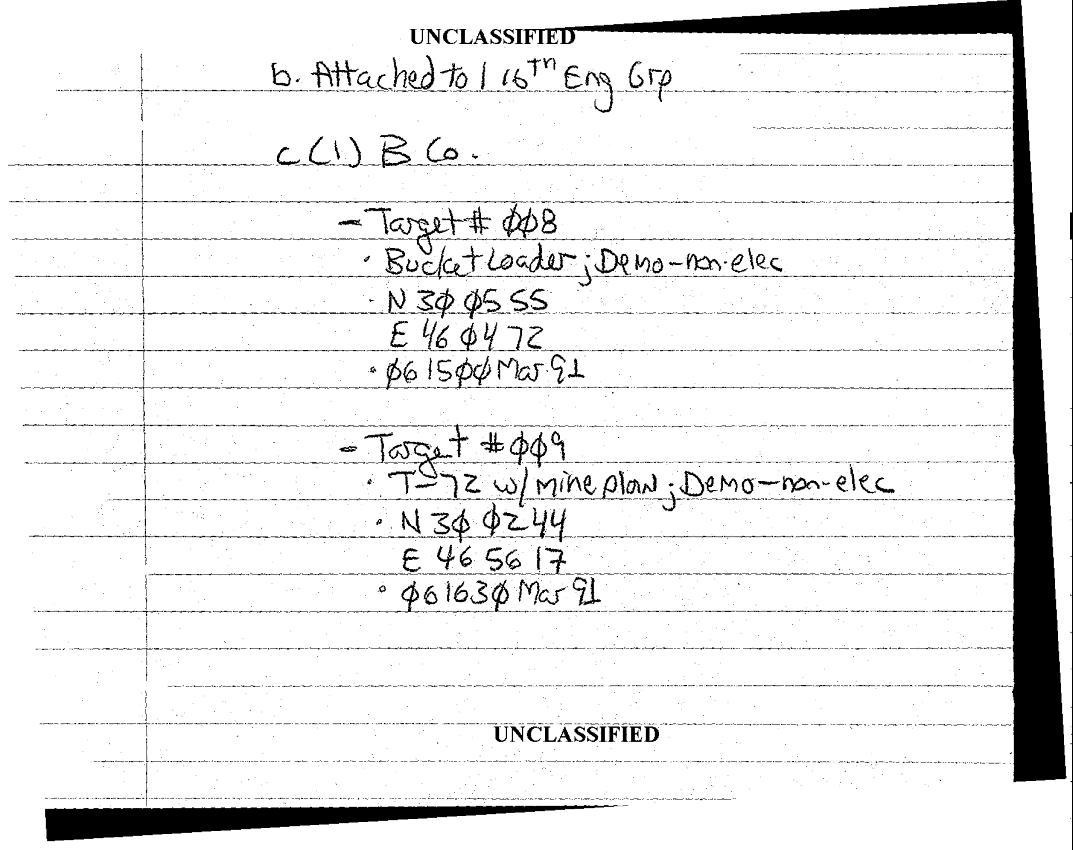 UNCLASSIFIED
b. Attached to 116th Eng Grp
c (1) B Co.
- Target # ØØ8
· Bucket Loader; Demo-non-elec
· N 3Ø Ø5 55
E 46 Ø4 72
· Ø6 15ØØ Mar 91
- Target # ØØ9
· T-72 w/ mine plow; Demo-non-elec
· N 3Ø Ø2 44
E 46 56 17
· Ø6 163Ø Mar 91
UNCLASSIFIED